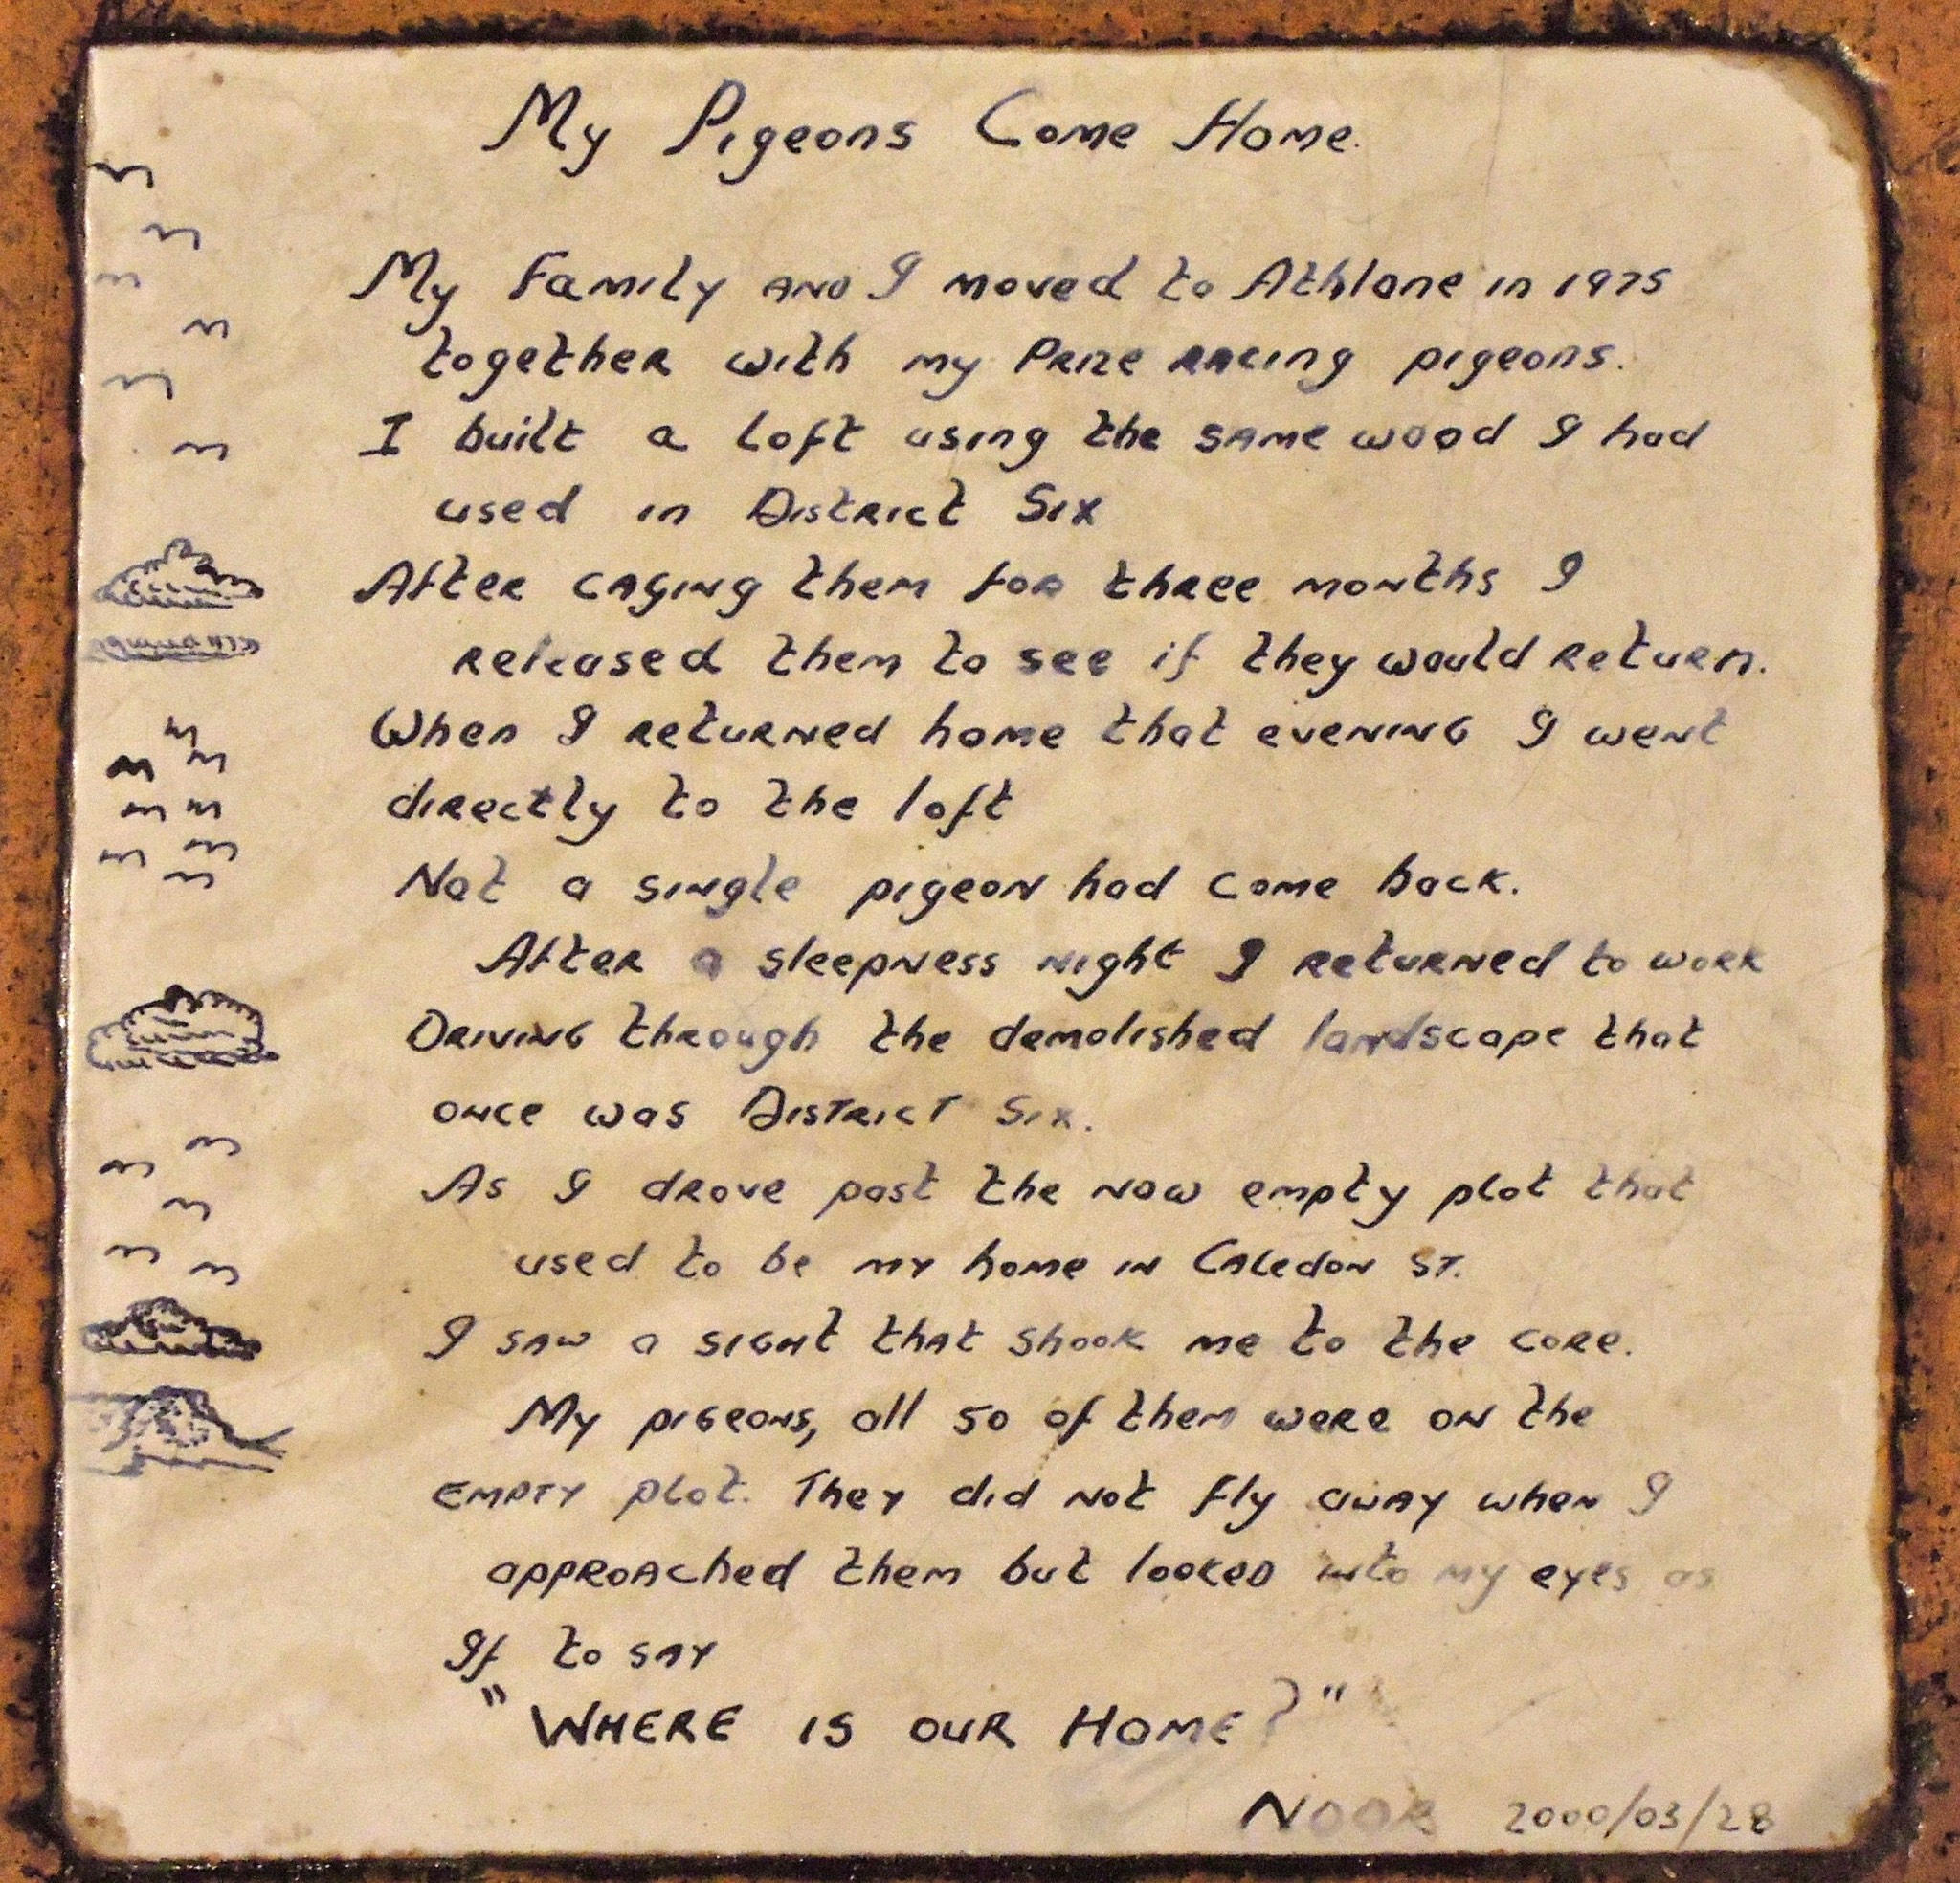 My Pigeons Come Home.
My Family AND I moved to Athlone in 1975
together with my Prize RACING pigeons.
I built a loft using the SAME wood I had
used in District Six
After CAGING them for three months I
released them to see if they would return.
When I returned home that evening I went
directly to the loft
Not a single pigeon had come back.
After a sleepness night I returned to work
Driving through the demolished landscape that
once was District Six.
As I drove past the now empty plot that
used to be my home in Caledon St.
I saw a sight that shook me to the core.
My pigeons, all 50 of them were on the
empty plot. They did not fly away when I
approached them but looked into my eyes as
If to say
"WHERE IS OUR HOME?"
NOOR 2000/03/28